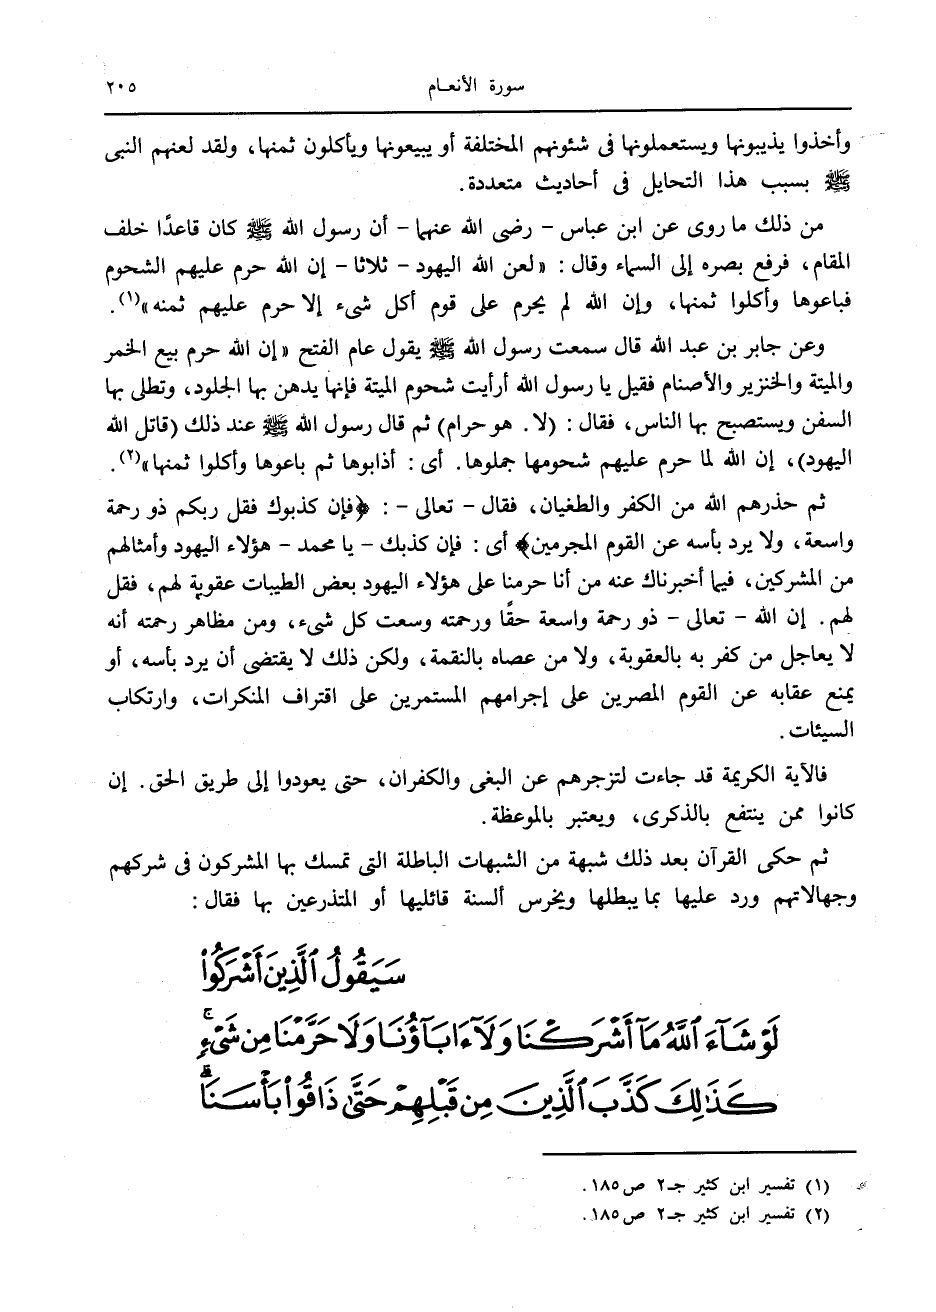 سورة الأنعـام
٢٠٥
وأخذوا يذيبونها ويستعملونها فى شئونهم المختلفة أو يبيعونها ويأكلون ثمنها، ولقد لعنهم النبى
ﷺ بسبب هذا التحايل فى أحاديث متعددة.
من ذلك ما روى عن ابن عباس - رضى الله عنهما - أن رسول الله ﷺ كان قاعدًا خلف
المقام، فرفع بصره إلى السماء وقال : «لعن الله اليهود - ثلاثا - إن الله حرم عليهم الشحوم
فباعوها وأكلوا ثمنها، وإن الله لم يحرم على قوم أكل شىء إلا حرم عليهم ثمنه»(١).
وعن جابر بن عبد الله قال سمعت رسول الله ﷺ يقول عام الفتح «إن الله حرم بيع الخمر
والميتة والخنزير والأصنام فقيل يا رسول الله أرأيت شحوم الميتة فإنها يدهن بها الجلود، وتطلى بها
السفن ويستصبح بها الناس، فقال : (لا. هو حرام) ثم قال رسول الله ﷺ عند ذلك (قاتل الله
اليهود)، إن الله لما حرم عليهم شحومها جملوها. أى : أذابوها ثم باعوها وأكلوا ثمنها»(٢).
ثم حذرهم الله من الكفر والطغيان، فقال - تعالى - : ﴿فإن كذبوك فقل ربكم ذو رحمة
واسعة، ولا يرد بأسه عن القوم المجرمين﴾ أى : فإن كذبك - يا محمد - هؤلاء اليهود وأمثالهم
من المشركين، فيما أخبرناك عنه من أنا حرمنا على هؤلاء اليهود بعض الطيبات عقوبة لهم، فقل
لهم. إن الله - تعالى - ذو رحمة واسعة حقًا ورحمته وسعت كل شىء، ومن مظاهر رحمته أنه
لا يعاجل من كفر به بالعقوبة، ولا من عصاه بالنقمة، ولكن ذلك لا يقتضى أن يرد بأسه، أو
يمنع عقابه عن القوم المصرين على إجرامهم المستمرين على اقتراف المنكرات، وارتكاب
السيئات.
فالآية الكريمة قد جاءت لتزجرهم عن البغى والكفران، حتى يعودوا إلى طريق الحق. إن
كانوا ممن ينتفع بالذكرى، ويعتبر بالموعظة.
ثم حكى القرآن بعد ذلك شبهة من الشبهات الباطلة التى تمسك بها المشركون فى شركهم
وجهالاتهم ورد عليها بما يبطلها ويخرس ألسنة قائليها أو المتذرعين بها فقال :
سَيَقُولُ ٱلَّذِينَ أَشْرَكُوا۟
لَوْ شَآءَ ٱللَّهُ مَآ أَشْرَكْنَا وَلَآ ءَابَآؤُنَا وَلَا حَرَّمْنَا مِن شَىْءٍۚ
كَذَٰلِكَ كَذَّبَ ٱلَّذِينَ مِن قَبْلِهِمْ حَتَّىٰ ذَاقُوا۟ بَأْسَنَاۗ
(١) تفسير ابن كثير جـ٢ ص١٨٥.
(٢) تفسير ابن كثير جـ٢ ص١٨٥.